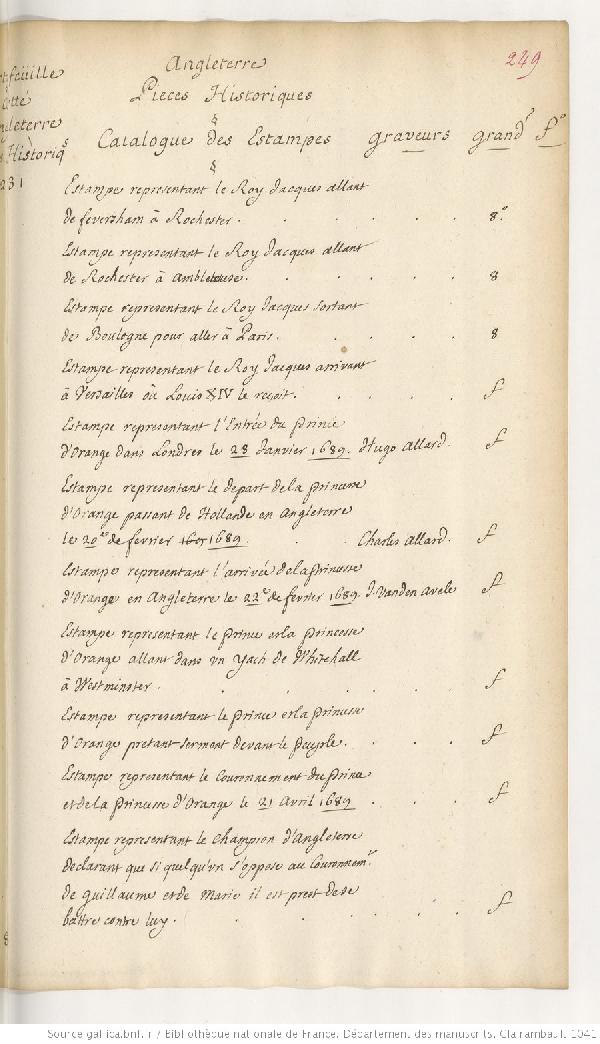 249
Angleterre
Pieces Historiques
Catalogue des Estampes graveurs grandr fo
feuille
cotté
ngleterre
Historiqs
231
Estampe representant le Roy Jacques allant
de feversham à Rochester. 8.o
Estampe representant le Roy Jacques allant
de Rochester à Ambleteuse. 8
Estampe representant le Roy Jacques sortant
de Boulogne pour aller à Paris. 8
Estampe representant le Roy Jacques arrivant
à Versailles où Louis XIV le reçoit. f
Estampe representant l'Entrée du Prince
d'Orange dans Londres le 28 Janvier 1689. Hugo Allard. f
Estampe representant le depart de la Princesse
d'Orange passant de Hollande en Angleterre
le 20e de fevrier 1689. Charles Allard. f
Estampe representant l'arrivée de la Princesse
d'Orange en Angleterre le 22e de fevrier 1689. J. Vanden avele f
Estampe representant le Prince et la Princesse
d'Orange allant dans un yach de Whitehall
à Westminster. f
Estampe representant le Prince et la Princesse
d'Orange pretant serment devant le peuple. f
Estampe representant le Couronnement du Prince
et de la Princesse d'Orange le 21 Avril 1689. f
Estampe representant le Champion d'Angleterre
declarant que si quelqu'un s'oppose au Couronnemt
de guillaume et de Marie il est prest de se
battre contre luy. f
Source gallica.bnf.fr / Bibliothèque nationale de France. Département des manuscrits. Clairambault 1041